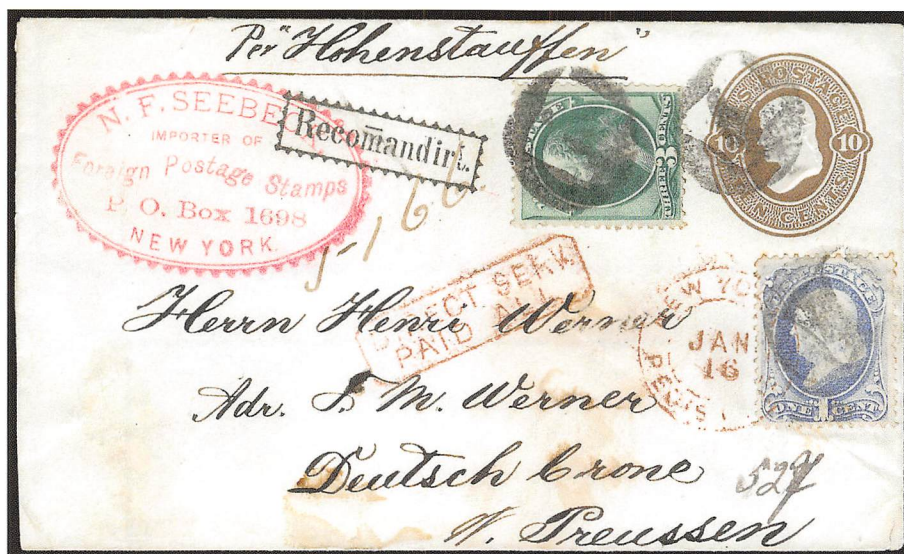 Per "Hohenstauffen"
N. F. SEEBECK
IMPORTER OF
Foreign Postage Stamps
P. O. Box 1698
NEW YORK.
Recom̅andirt.
U.S. POSTAGE
10 10
TEN CENTS
DIRECT SERV.
PAID ALL
NEW YO
JAN
16
REGIS
ONE 1 CENT
Herrn Henri Werner
Adr. F. M. Werner
Deutsch Crone
W. Preussen
527